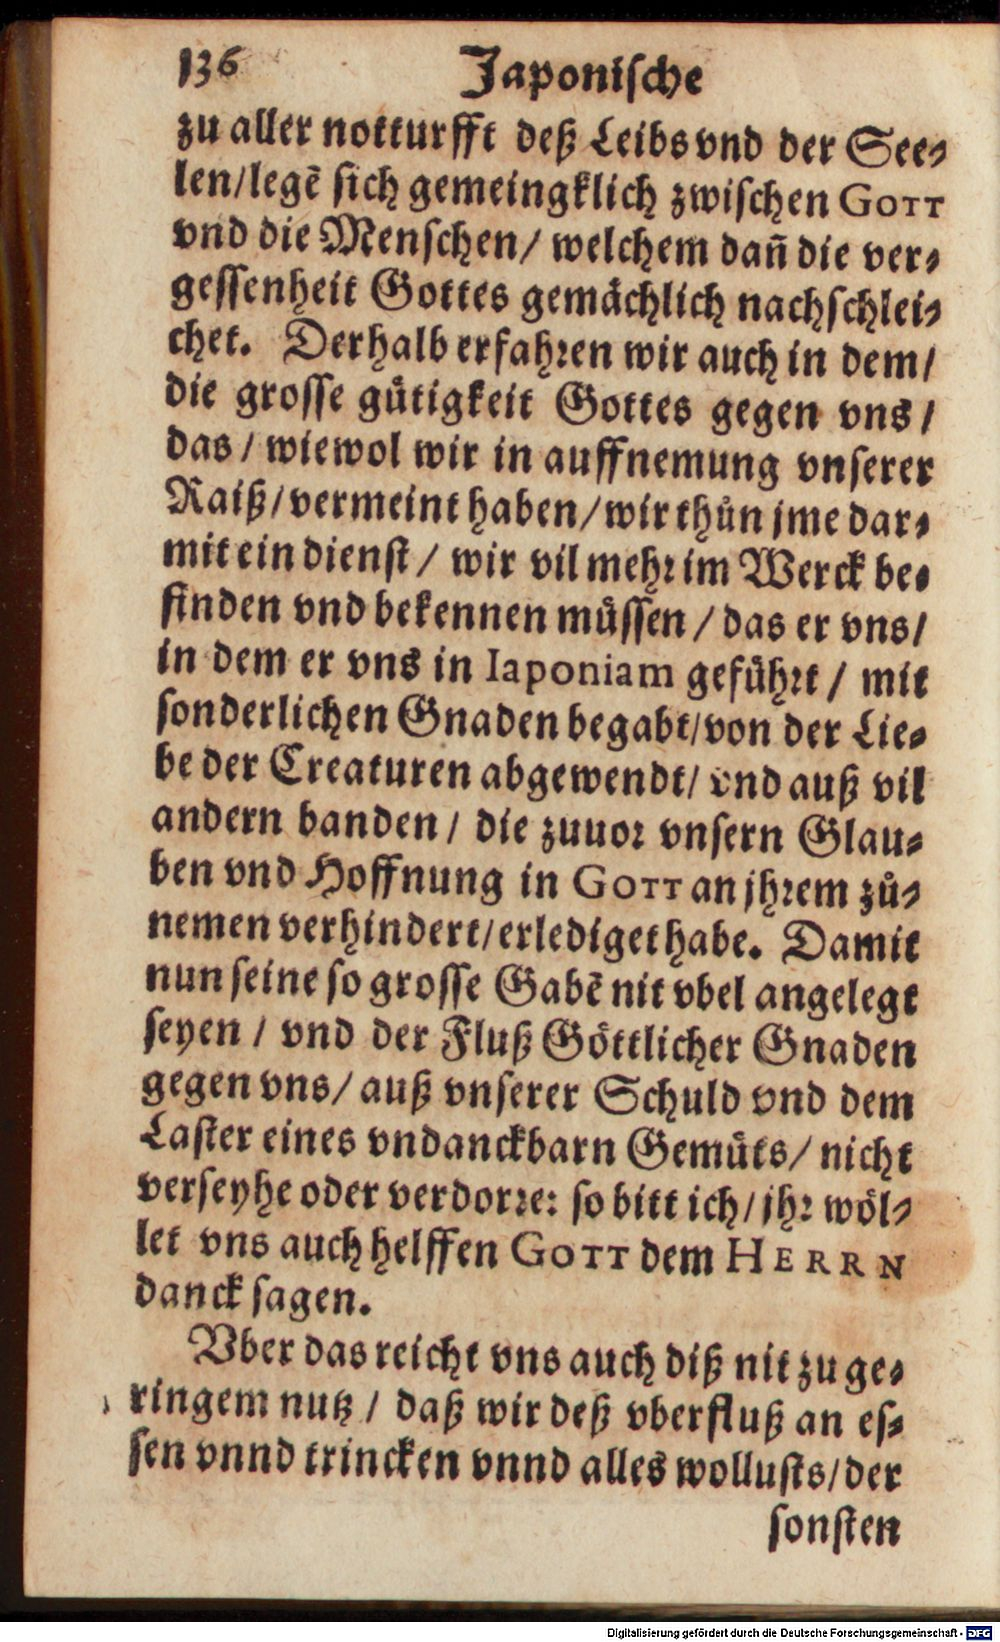 136 Japonische
zu aller notturfft deß Leibs vnd der See⸗
len/legẽ sich gemeingklich zwischen GOTT
vnd die Menschen/ welchem dañ die ver⸗
gessenheit Gottes gemächlich nachschlei⸗
chet. Derhalb erfahren wir auch in dem/
die grosse gütigkeit Gottes gegen vns/
das/ wiewol wir in auffnemung vnserer
Raiß/vermeint haben/wir thün jme dar⸗
mit ein dienst/ wir vil mehr im Werck be⸗
finden vnd bekennen müssen/das er vns/
in dem er vns in Iaponiam geführt/ mit
sonderlichen Gnaden begabt/von der Lie⸗
be der Creaturen abgewendt/ vnd auß vil
andern banden/ die zuuor vnsern Glau⸗
ben vnd Hoffnung in GOTT an jhrem zů⸗
nemen verhindert/erlediget habe. Damit
nun seine so grosse Gabẽ nit vbel angelegt
seyen/ vnd der Fluß Göttlicher Gnaden
gegen vns/ auß vnserer Schuld vnd dem
Laster eines vndanckbarn Gemüts/ nicht
verseyhe oder verdorre: so bitt ich/jhr wöl⸗
let vns auch helffen GOTT dem HERRN
danck sagen.
Vber das reicht vns auch diß nit zu ge⸗
ringem nutz/ daß wir deß vberfluß an es⸗
sen vnnd trincken vnnd alles wollusts/der
sonsten
Digitalisierung gefördert durch die Deutsche Forschungsgemeinschaft - DFG